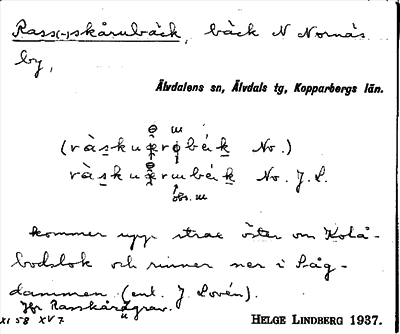 Rass(-)skårubäck, bäck N Nornäs
by,
Älvdalens sn, Älvdals tg, Kopparbergs län.
No.)
No. J. L.
obs. m
kommer upp strax öster om Kolå-
bodslok och rinner ner i Såg-
dammen (enl. J. Lovén).
Jfr Rasskårugrav.
XI 58 XV 7
HELGE LINDBERG 1937.